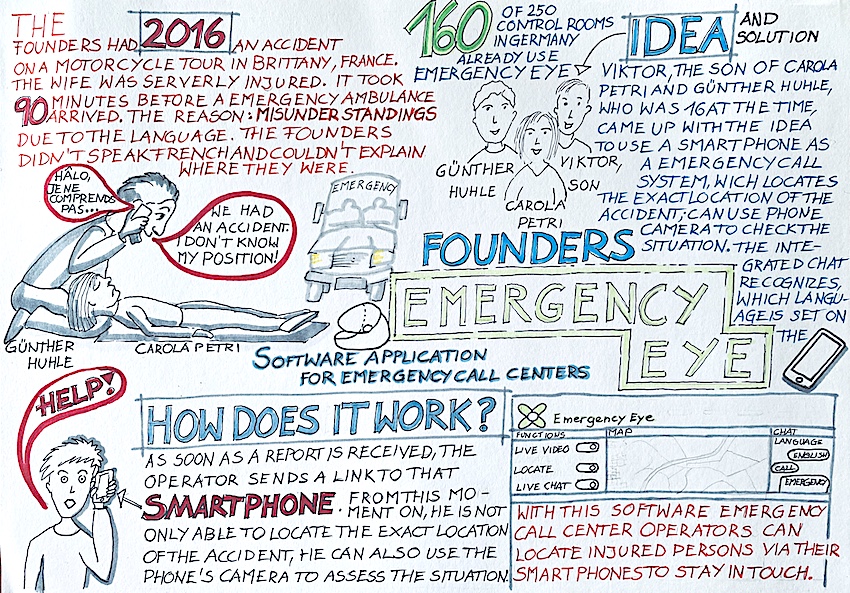 THE
FOUNDERS HAD 2016 AN ACCIDENT
ON A MOTORCYCLE TOUR IN BRITTANY, FRANCE.
THE WIFE WAS SERVERLY INJURED. IT TOOK
90 MINUTES BEFORE A EMERGENCY AMBULANCE
ARRIVED. THE REASON: MISUNDERSTANDINGS
DUE TO THE LANGUAGE. THE FOUNDERS
DIDN'T SPEAK FRENCH AND COULDN'T EXPLAIN
WHERE THEY WERE.
HÂLO,
JE NE
COMPRENDS
PAS...
WE HAD
AN ACCIDENT.
I DON'T KNOW
MY POSITION!
GÜNTHER
HUHLE
CAROLA PETRI
EMERGENCY
160 OF 250
CONTROL ROOMS
IN GERMANY
ALREADY USE
EMERGENCY EYE
GÜNTHER
HUHLE
CAROLA
PETRI
VIKTOR,
SON
FOUNDERS
IDEA AND
SOLUTION
VIKTOR, THE SON OF CAROLA
PETRI AND GÜNTHER HUHLE,
WHO WAS 16 AT THE TIME,
CAME UP WITH THE IDEA
TO USE A SMARTPHONE AS
A EMERGENCY CALL
SYSTEM, WICH LOCATES
THE EXACT LOCATION OF THE
ACCIDENT; CAN USE PHONE
CAMERA TO CHECK THE
SITUATION. THE INTE-
GRATED CHAT
RECOGNIZES,
WHICH LANGU-
AGE IS SET ON
THE
EMERGENCY
EYE
SOFTWARE APPLICATION
FOR EMERGENCY CALL CENTERS
HELP!
HOW DOES IT WORK?
AS SOON AS A REPORT IS RECEIVED, THE
OPERATOR SENDS A LINK TO THAT
SMARTPHONE. FROM THIS MO-
MENT ON, HE IS NOT
ONLY ABLE TO LOCATE THE EXACT LOCATION
OF THE ACCIDENT, HE CAN ALSO USE THE
PHONE'S CAMERA TO ASSESS THE SITUATION.
Emergency Eye
FUNCTIONS
LIVE VIDEO
LOCATE
LIVE CHAT
MAP
CHAT
LANGUAGE
ENGLISH
CALL
EMERGENCY
WITH THIS SOFTWARE EMERGENCY
CALL CENTER OPERATORS CAN
LOCATE INJURED PERSONS VIA THEIR
SMARTPHONES TO STAY IN TOUCH.